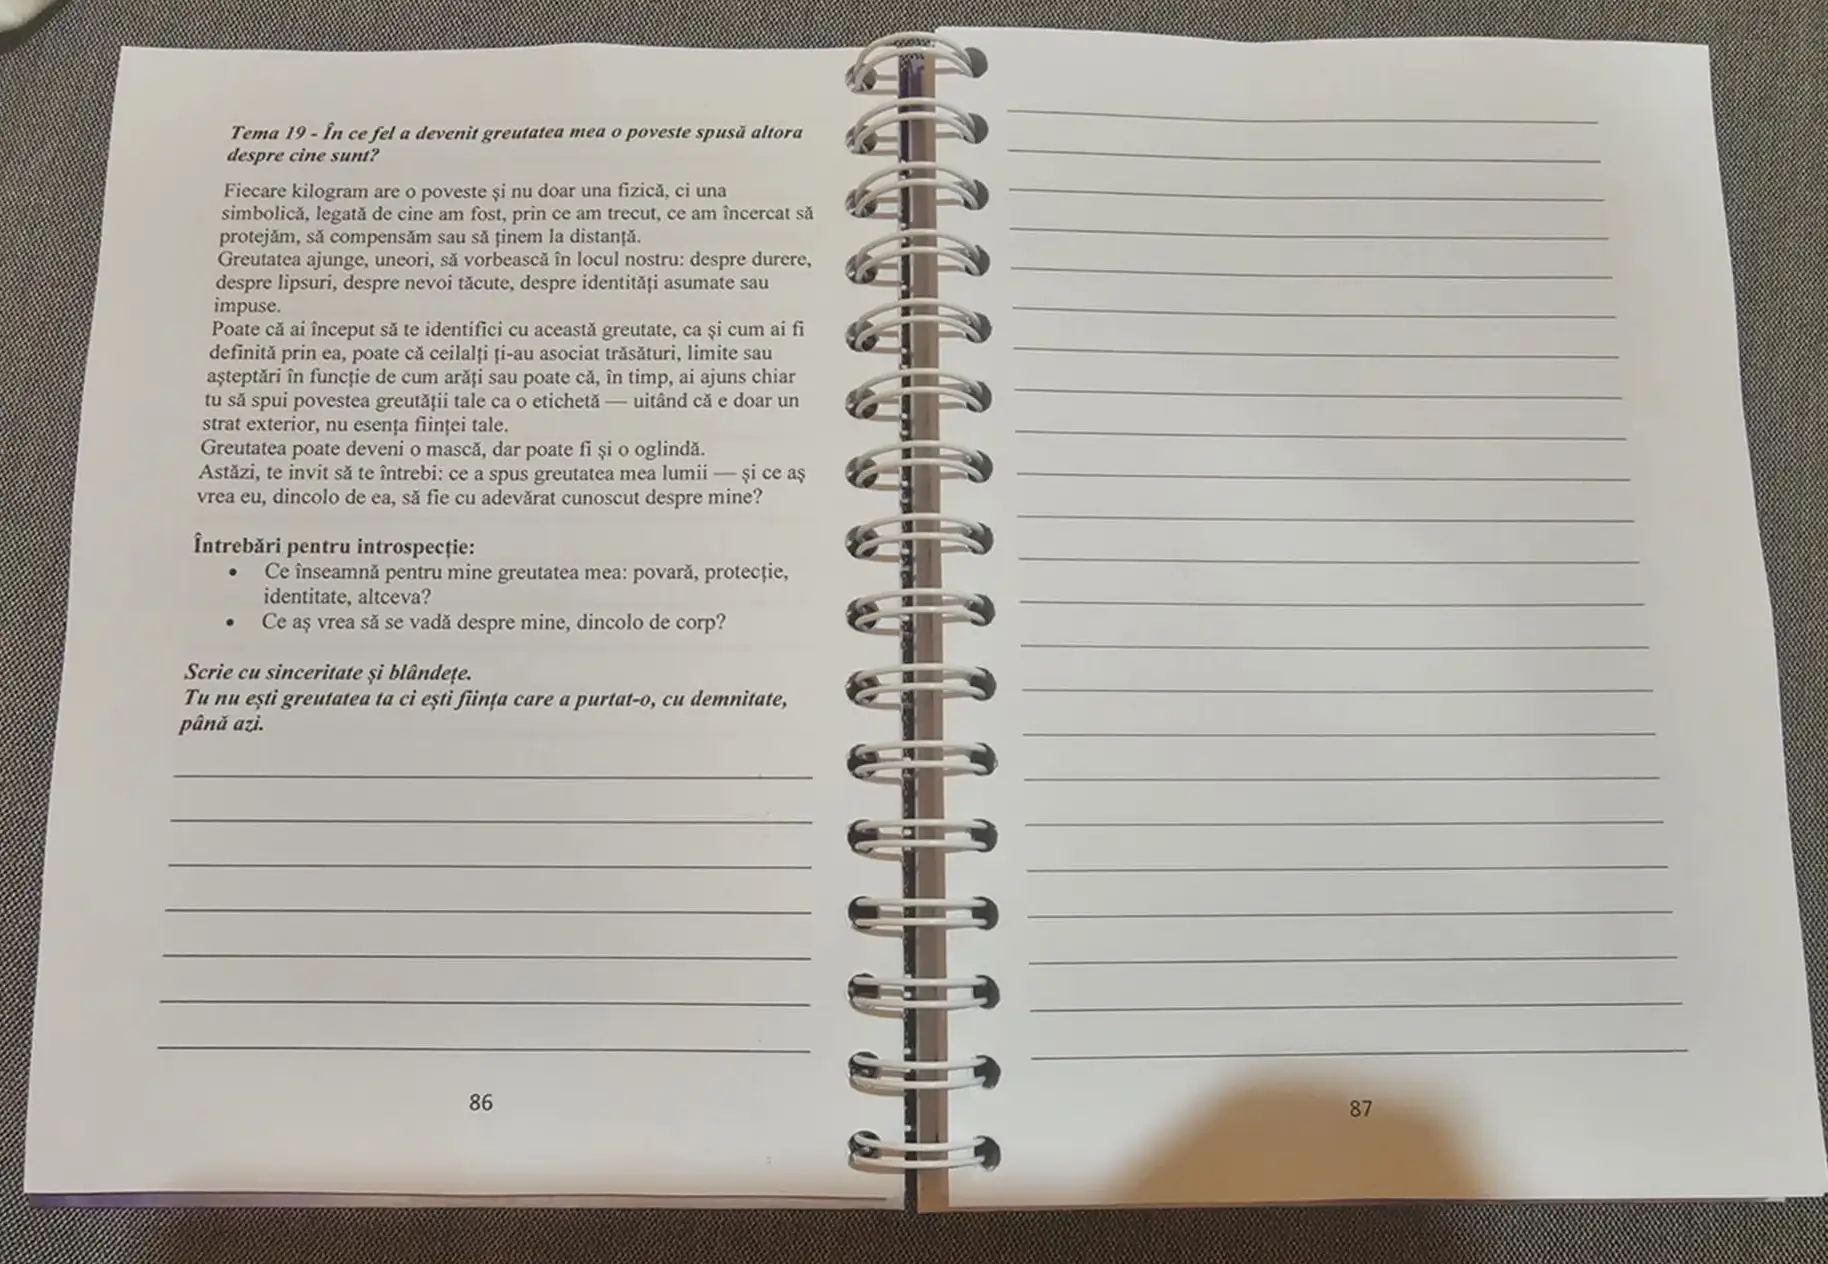 Tema 19 - În ce fel a devenit greutatea mea o poveste spusă altora
despre cine sunt?
Fiecare kilogram are o poveste și nu doar una fizică, ci una
simbolică, legată de cine am fost, prin ce am trecut, ce am încercat să
protejăm, să compensăm sau să ținem la distanță.
Greutatea ajunge, uneori, să vorbească în locul nostru: despre durere,
despre lipsuri, despre nevoi tăcute, despre identități asumate sau
impuse.
Poate că ai început să te identifici cu această greutate, ca și cum ai fi
definită prin ea, poate că ceilalți ți-au asociat trăsături, limite sau
așteptări în funcție de cum arăți sau poate că, în timp, ai ajuns chiar
tu să spui povestea greutății tale ca o etichetă — uitând că e doar un
strat exterior, nu esența ființei tale.
Greutatea poate deveni o mască, dar poate fi și o oglindă.
Astăzi, te invit să te întrebi: ce a spus greutatea mea lumii — și ce aș
vrea eu, dincolo de ea, să fie cu adevărat cunoscut despre mine?
Întrebări pentru introspecție:
• Ce înseamnă pentru mine greutatea mea: povară, protecție,
identitate, altceva?
• Ce aș vrea să se vadă despre mine, dincolo de corp?
Scrie cu sinceritate și blândețe.
Tu nu ești greutatea ta ci ești ființa care a purtat-o, cu demnitate,
până azi.
86
87